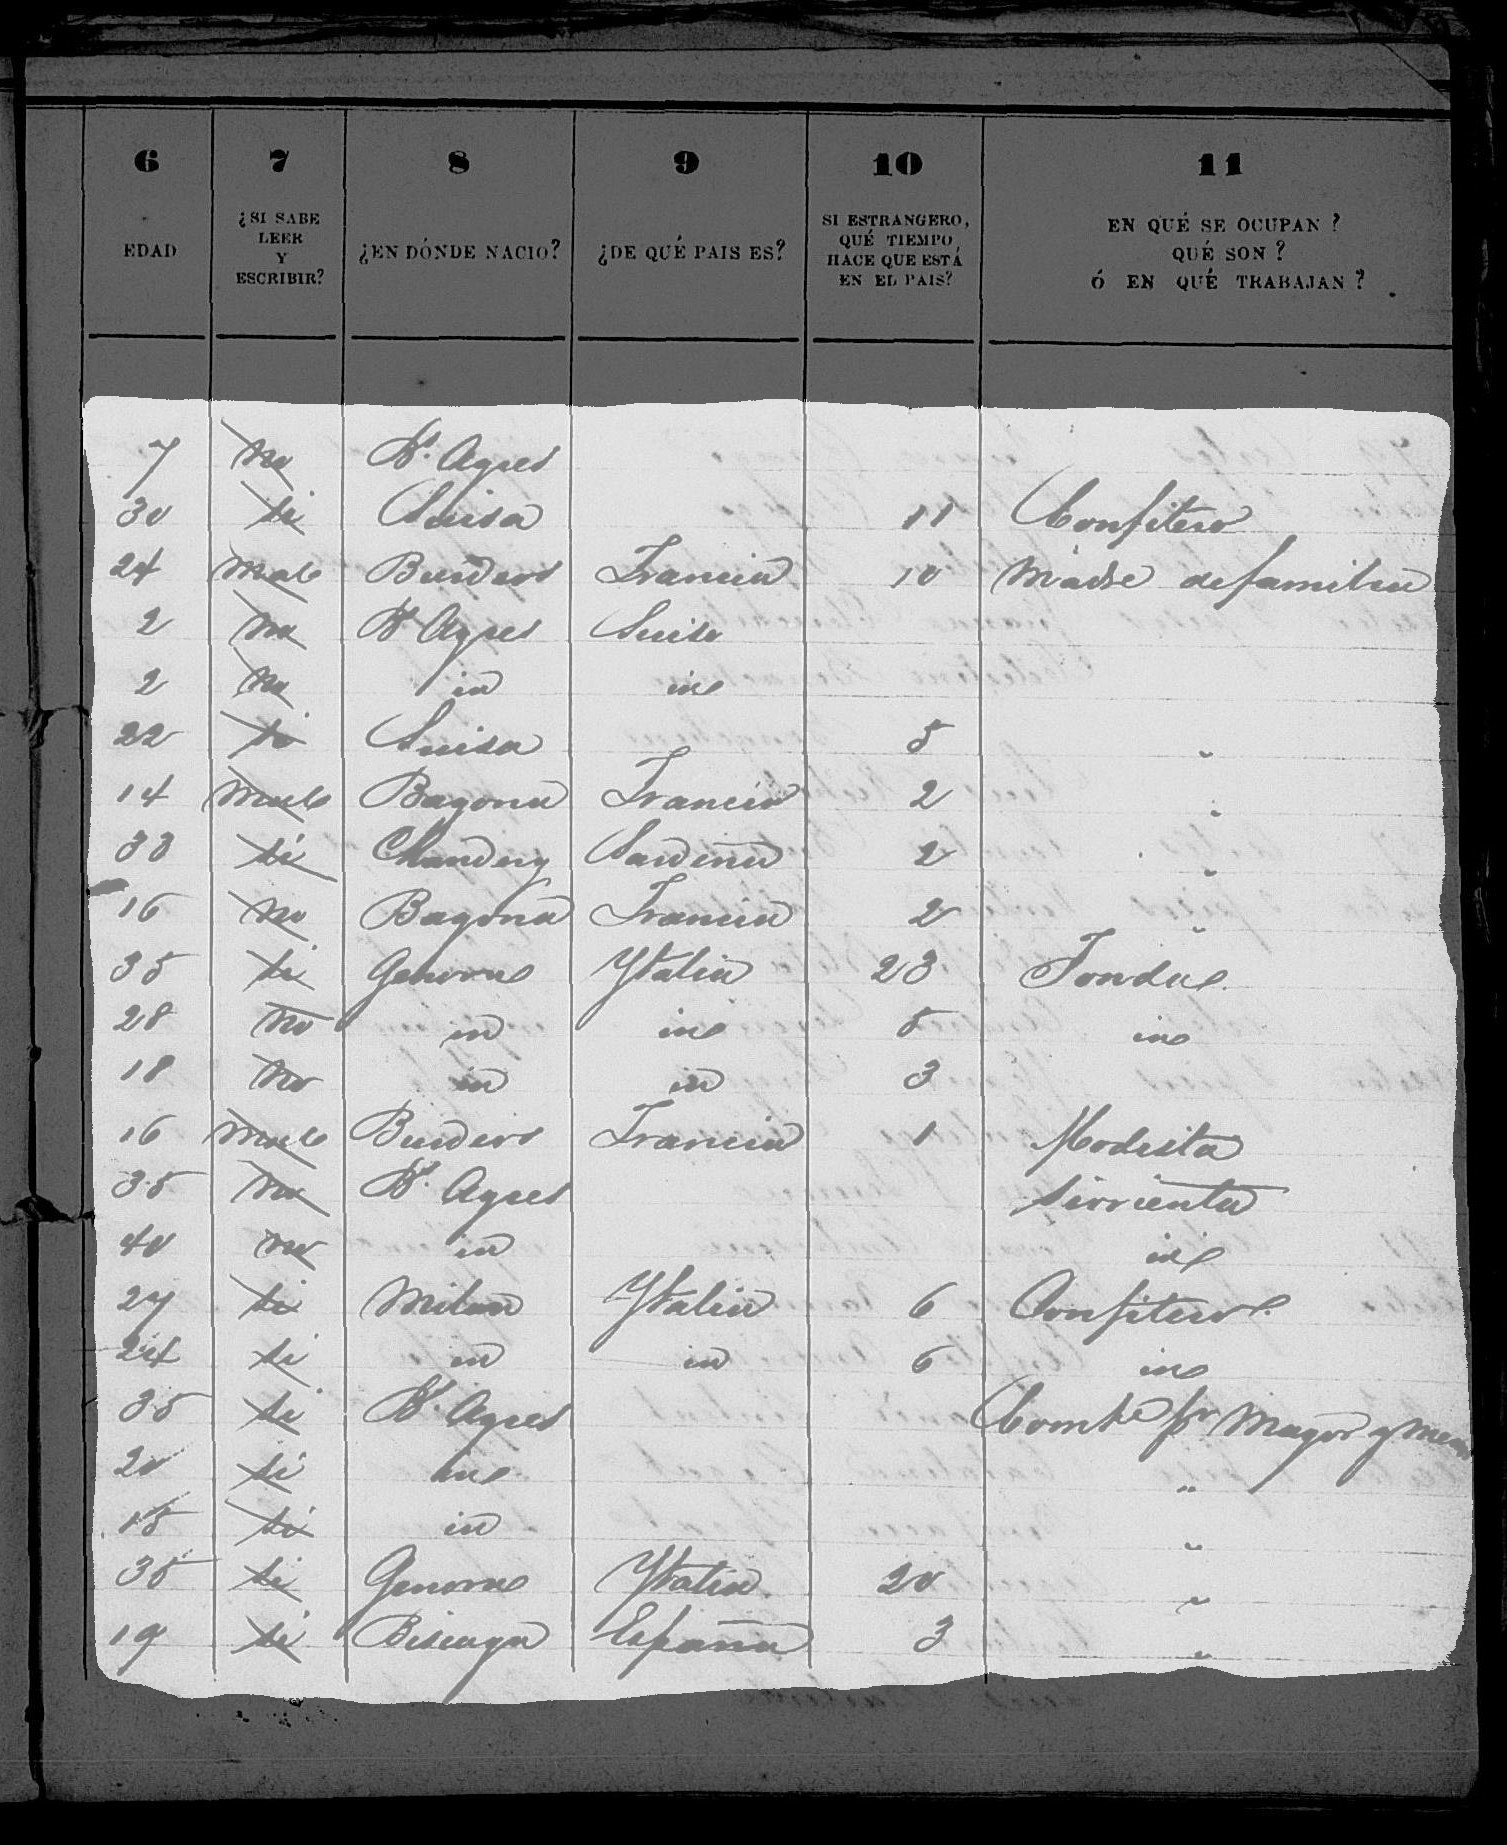 6 7 8 9 10 11
EDAD ¿SI SABE LEER Y ESCRIBIR? ¿EN DÓNDE NACIO? ¿DE QUÉ PAIS ES? SI ESTRANGERO, QUÉ TIEMPO HACE QUE ESTÁ EN EL PAIS? EN QUÉ SE OCUPAN? QUÉ SON? Ó EN QUÉ TRABAJAN?
7 no Bs. Ayres
30 si Suisa 11 Confitero
24 malo Burdeos Francia 10 Madre de familia
2 no Bs Ayres Suiso
2 no id id
22 si Suisa 5 "
14 malo Bayona Francia 2 "
33 si Sardeña 2 "
16 no Bayona Francia 2 "
35 si Genova Ytalia 23 Fonda
28 no id id 5 id
18 no id id 3
16 malo Burdeos Francia 1 Modista
35 no Bs. Ayres Sirvienta
40 no id id
27 si Milan Ytalia 6 Confitero
24 si id id 6 id
35 si Bs. Ayres Comte pr Mayor y men
20 si id "
15 si id "
35 si Genova Ytalia 20 "
19 si Biscaya España 3 "